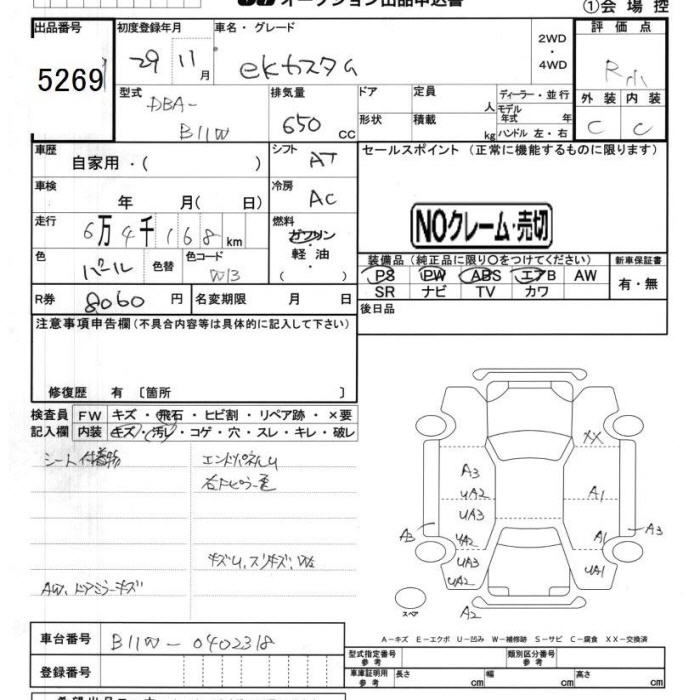 オークション出品申込書
①会場控
出品番号
5269
初度登録年月
29 11月
車名・グレード
ekカスタム
2WD
・
4WD
評価点
R小
型式
DBA-
B11W
排気量
650 cc
ドア
定員
人
ディーラー・並行
モデル
年式 年
形状
積載
kg
ハンドル 左・右
外装 内装
C C
車歴
自家用・( )
シフト
AT
セールスポイント (正常に機能するものに限ります)
車検
年 月( 日)
冷房
AC
走行
6万4千168km
燃料
ガソリン
・
軽油
・
( )
NOクレーム・売切
色
パール
色替
色コード
W13
装備品 (純正品に限り○をつけてください)
新車保証書
PS PW ABS エアB AW
SR ナビ TV カワ
有・無
R券
8060円
名変期限 月 日
後日品
注意事項申告欄 (不具合内容等は具体的に記入して下さい)
修復歴 有 〔箇所 〕
検査員
記入欄
FW キズ・飛石・ヒビ割・リペア跡・×要
内装 キズ・汚レ・コゲ・穴・スレ・キレ・破レ
シート付着物
エンドパネルU
キズU、スリキズ、W2
AW、ドアミラーキズ
XX
A3
UA2
A1
UA3
A3
UA2
A1
A3
UA3
UA2
UA1
A2
スペア
A-キズ E-エクボ U-凹み W-補修跡 S-サビ C-腐食 XX-交換済
車台番号
B11W-0402318
型式指定番号
参考
類別区分番号
参考
登録番号
車庫証明用
参考
長さ cm
幅 cm
高さ cm